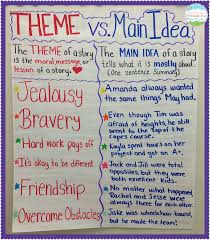 THEME vs. Main Idea
The THEME of a story
is the moral, message or
lesson of a story.
Jealousy
Bravery
Hard work pays off
It's okay to be different
Friendship
Overcome Obstacles
The MAIN IDEA of a story
tells what it is mostly about.
(One sentence summary)
Amanda always wanted
the same things May had.
Even though Tim was
afraid of heights, he still
went to the top of the
ropes course.
Kayla spent hours on her
project and got an A+.
Jack and Jill were total
opposites, but they were
the best of friends.
No matter what happened
Rachel and Jesse were
always there for each other.
Jake was wheelchair-bound,
but he made the team.